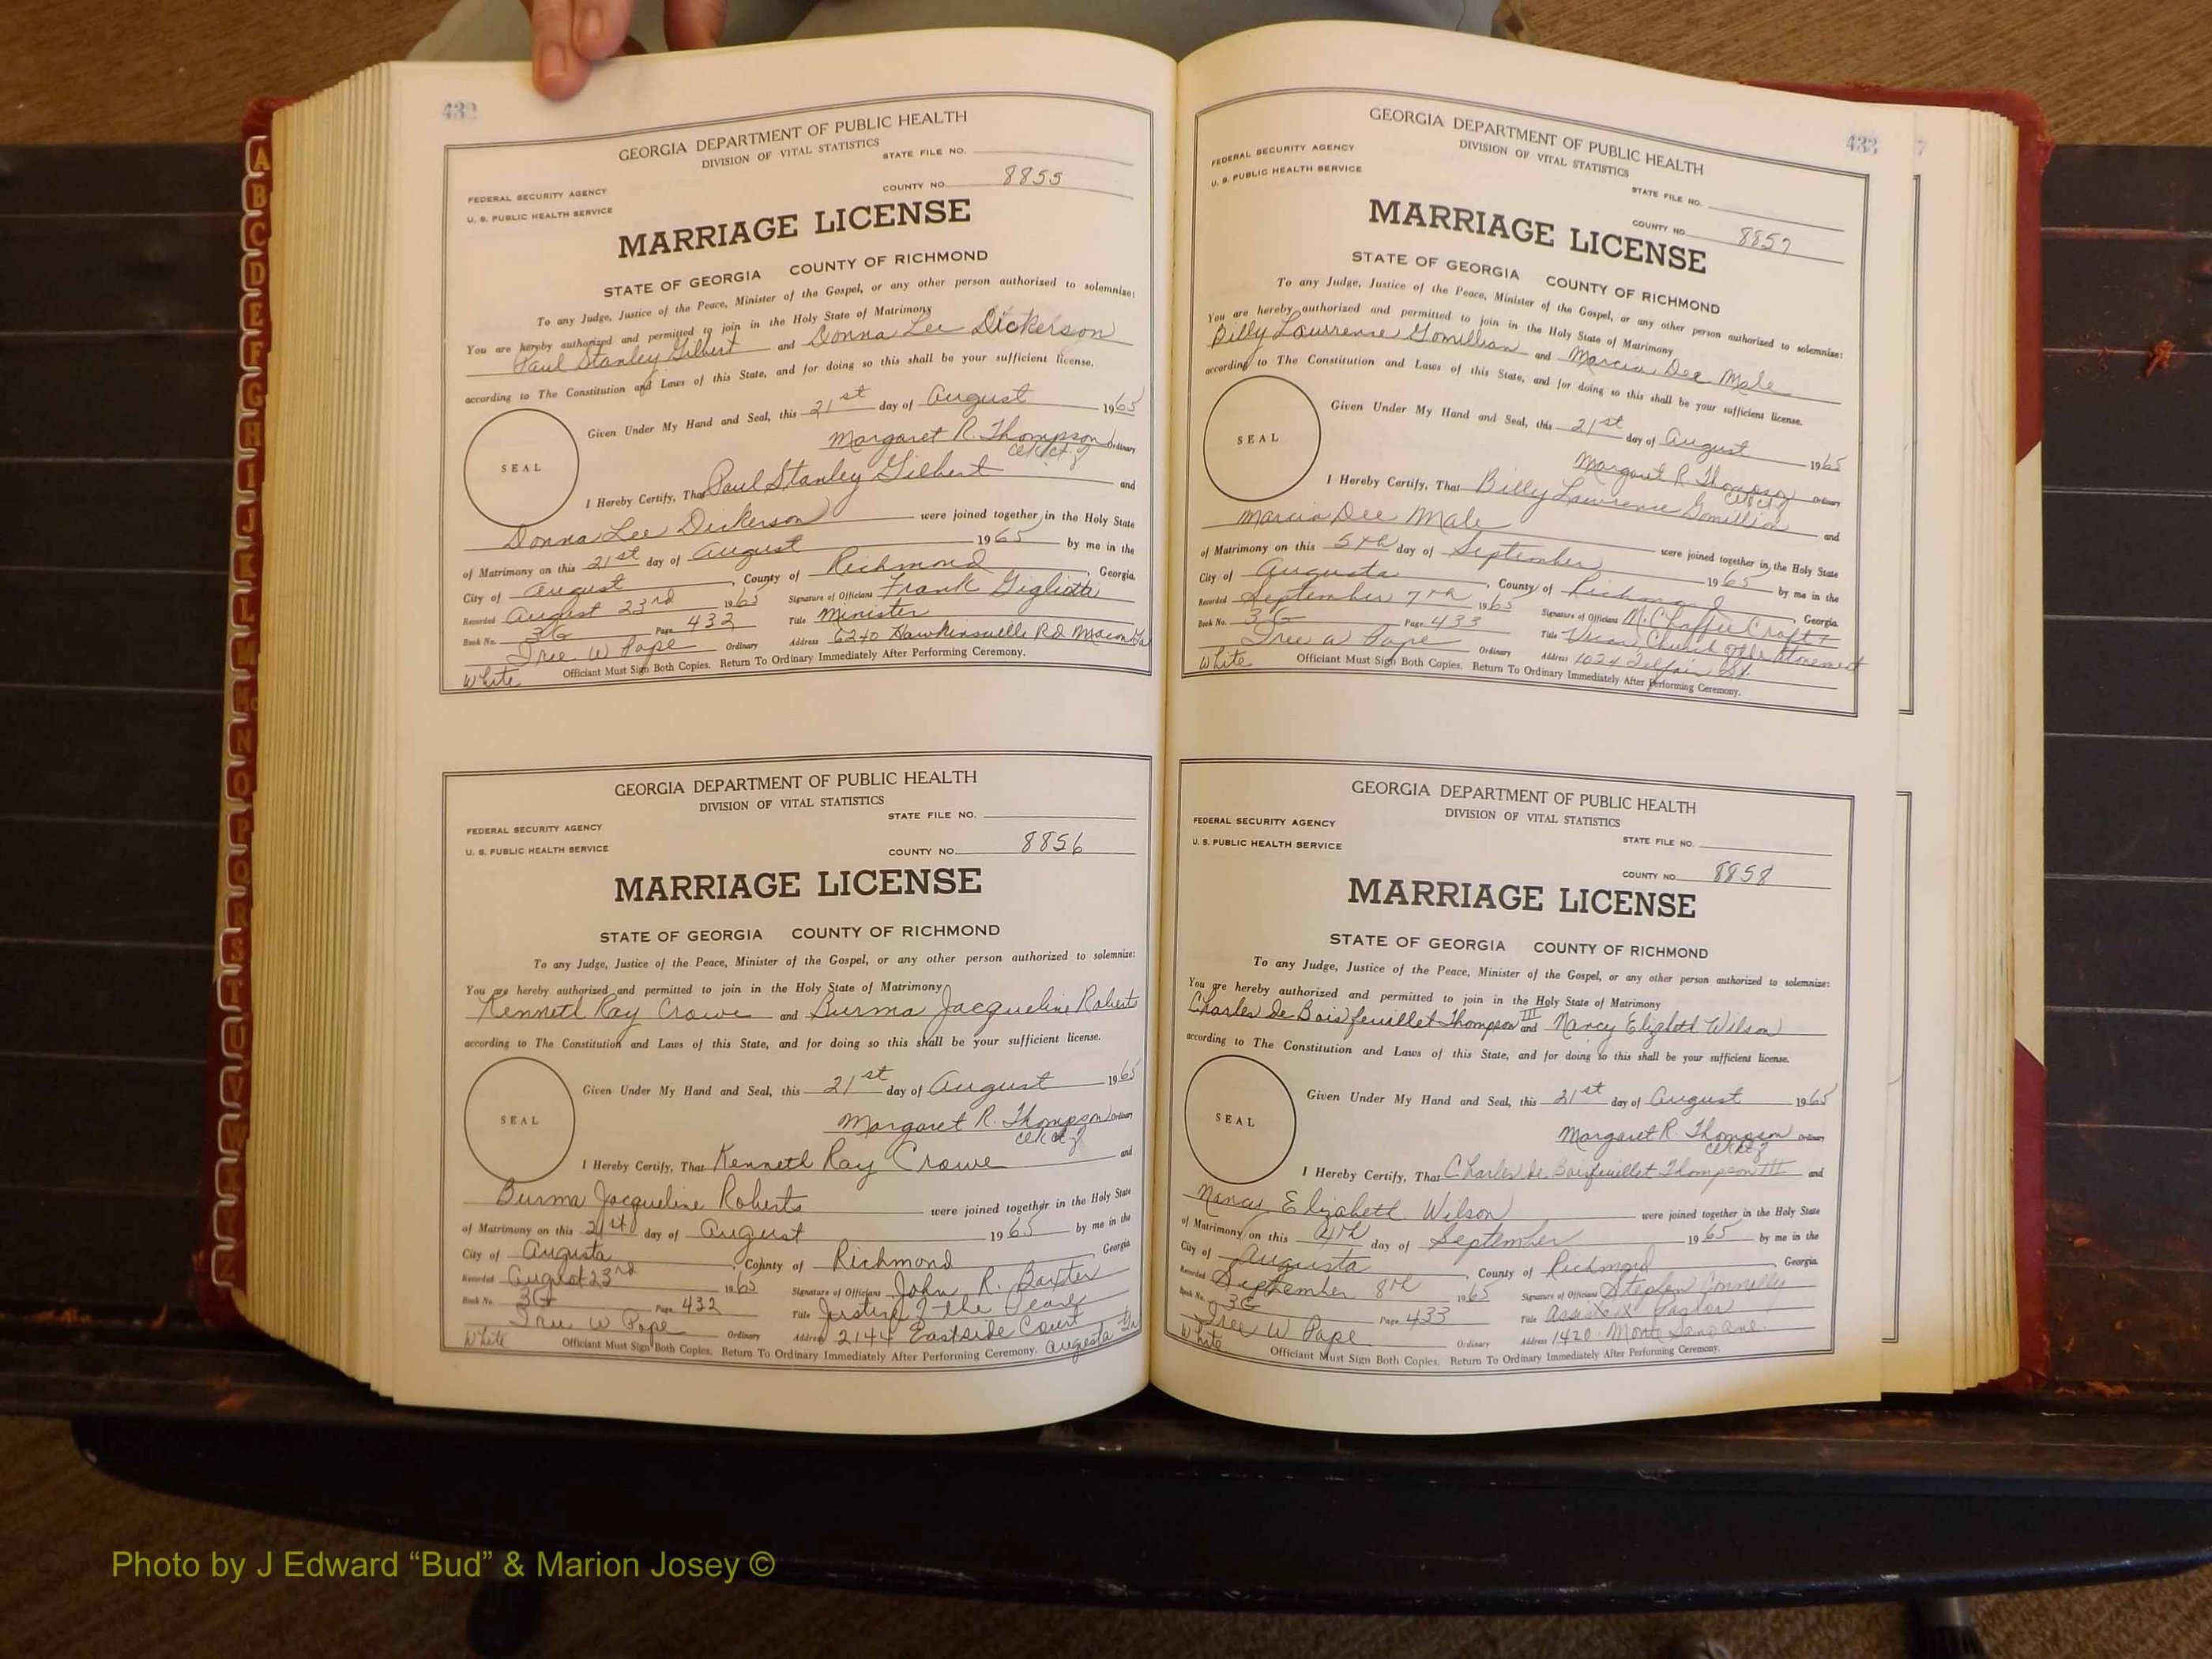 432
GEORGIA DEPARTMENT OF PUBLIC HEALTH
DIVISION OF VITAL STATISTICS
STATE FILE NO.
FEDERAL SECURITY AGENCY
COUNTY NO. 8855
U. S. PUBLIC HEALTH SERVICE
MARRIAGE LICENSE
STATE OF GEORGIA COUNTY OF RICHMOND
To any Judge, Justice of the Peace, Minister of the Gospel, or any other person authorized to solemnize:
You are hereby authorized and permitted to join in the Holy State of Matrimony
Paul Stanley Gilbert and Donna Lee Dickerson
according to The Constitution and Laws of this State, and for doing so this shall be your sufficient license.
Given Under My Hand and Seal, this 21st day of August 1965
SEAL
Margaret R. Thompson Ordinary
I Hereby Certify, That Paul Stanley Gilbert and
Donna Lee Dickerson were joined together in the Holy State
of Matrimony on this 21st day of August 1965 by me in the
City of August, County of Richmond, Georgia.
Recorded August 23rd 1965 Signature of Officians Frank Gigliotti
Book No. 3G Page 432 Title Minister
Iree W Pope Ordinary Address 6240 Hawkinsville Rd Macon Ga
White Officiant Must Sign Both Copies. Return To Ordinary Immediately After Performing Ceremony.
GEORGIA DEPARTMENT OF PUBLIC HEALTH
DIVISION OF VITAL STATISTICS
STATE FILE NO.
FEDERAL SECURITY AGENCY
U. S. PUBLIC HEALTH SERVICE
COUNTY NO. 8856
MARRIAGE LICENSE
STATE OF GEORGIA COUNTY OF RICHMOND
To any Judge, Justice of the Peace, Minister of the Gospel, or any other person authorized to solemnize:
You are hereby authorized and permitted to join in the Holy State of Matrimony
Kenneth Ray Crowe and Burma Jacqueline Roberts
according to The Constitution and Laws of this State, and for doing so this shall be your sufficient license.
Given Under My Hand and Seal, this 21st day of August 1965
SEAL
Margaret R. Thompson Ordinary
I Hereby Certify, That Kenneth Ray Crowe and
Burma Jacqueline Roberts were joined together in the Holy State
of Matrimony on this 21st day of August 1965 by me in the
City of Augusta, County of Richmond, Georgia
Recorded August 23rd 1965 Signature of Officians John R. Baxter
Book No. 3G Page 432 Title Justice of the Peace
Iree W Pope Ordinary Address 2144 Eastside Court
White Officiant Must Sign Both Copies. Return To Ordinary Immediately After Performing Ceremony. Augusta Ga
433
GEORGIA DEPARTMENT OF PUBLIC HEALTH
DIVISION OF VITAL STATISTICS
FEDERAL SECURITY AGENCY
U. S. PUBLIC HEALTH SERVICE
STATE FILE NO.
COUNTY NO. 8857
MARRIAGE LICENSE
STATE OF GEORGIA COUNTY OF RICHMOND
To any Judge, Justice of the Peace, Minister of the Gospel, or any other person authorized to solemnize:
You are hereby authorized and permitted to join in the Holy State of Matrimony
Billy Lawrence Gomillion and Marcia Dee Male
according to The Constitution and Laws of this State, and for doing so this shall be your sufficient license.
Given Under My Hand and Seal, this 21st day of August 1965
SEAL
Margaret R. Thompson Ordinary
I Hereby Certify, That Billy Lawrence Gomillion and
Marcia Dee Male were joined together in the Holy State
of Matrimony on this 5th day of September 1965 by me in the
City of Augusta, County of Richmond, Georgia
Recorded September 7th 1965 Signature of Officians M. Chaffee Croft
Book No. 3G Page 433 Title Vicar, Church of the Atonement
Iree W Pope Ordinary Address 1024 Telfair St.
White Officiant Must Sign Both Copies. Return To Ordinary Immediately After Performing Ceremony.
GEORGIA DEPARTMENT OF PUBLIC HEALTH
DIVISION OF VITAL STATISTICS
FEDERAL SECURITY AGENCY
U. S. PUBLIC HEALTH SERVICE
STATE FILE NO.
COUNTY NO. 8858
MARRIAGE LICENSE
STATE OF GEORGIA COUNTY OF RICHMOND
To any Judge, Justice of the Peace, Minister of the Gospel, or any other person authorized to solemnize:
You are hereby authorized and permitted to join in the Holy State of Matrimony
Charles de Boisfeuillet Thompson III and Nancy Elizabeth Wilson
according to The Constitution and Laws of this State, and for doing so this shall be your sufficient license.
Given Under My Hand and Seal, this 21st day of August 1965
SEAL
Margaret R. Thompson Ordinary
I Hereby Certify, That Charles de Boisfeuillet Thompson III and
Nancy Elizabeth Wilson were joined together in the Holy State
of Matrimony on this 4th day of September 1965 by me in the
City of Augusta, County of Richmond, Georgia
Recorded September 8th 1965 Signature of Officians Stephen Connelly
Book No. 3G Page 433 Title Pastor
Iree W Pope Ordinary Address 1420 Monte Sano ave.
White Officiant Must Sign Both Copies. Return To Ordinary Immediately After Performing Ceremony.
7
A
B
C
D
E
F
G
H
I
J
K
L
M
Mc
N
O
P
Q
R
S
T
U
V
W
X
Y
Z
Photo by J Edward “Bud” & Marion Josey ©